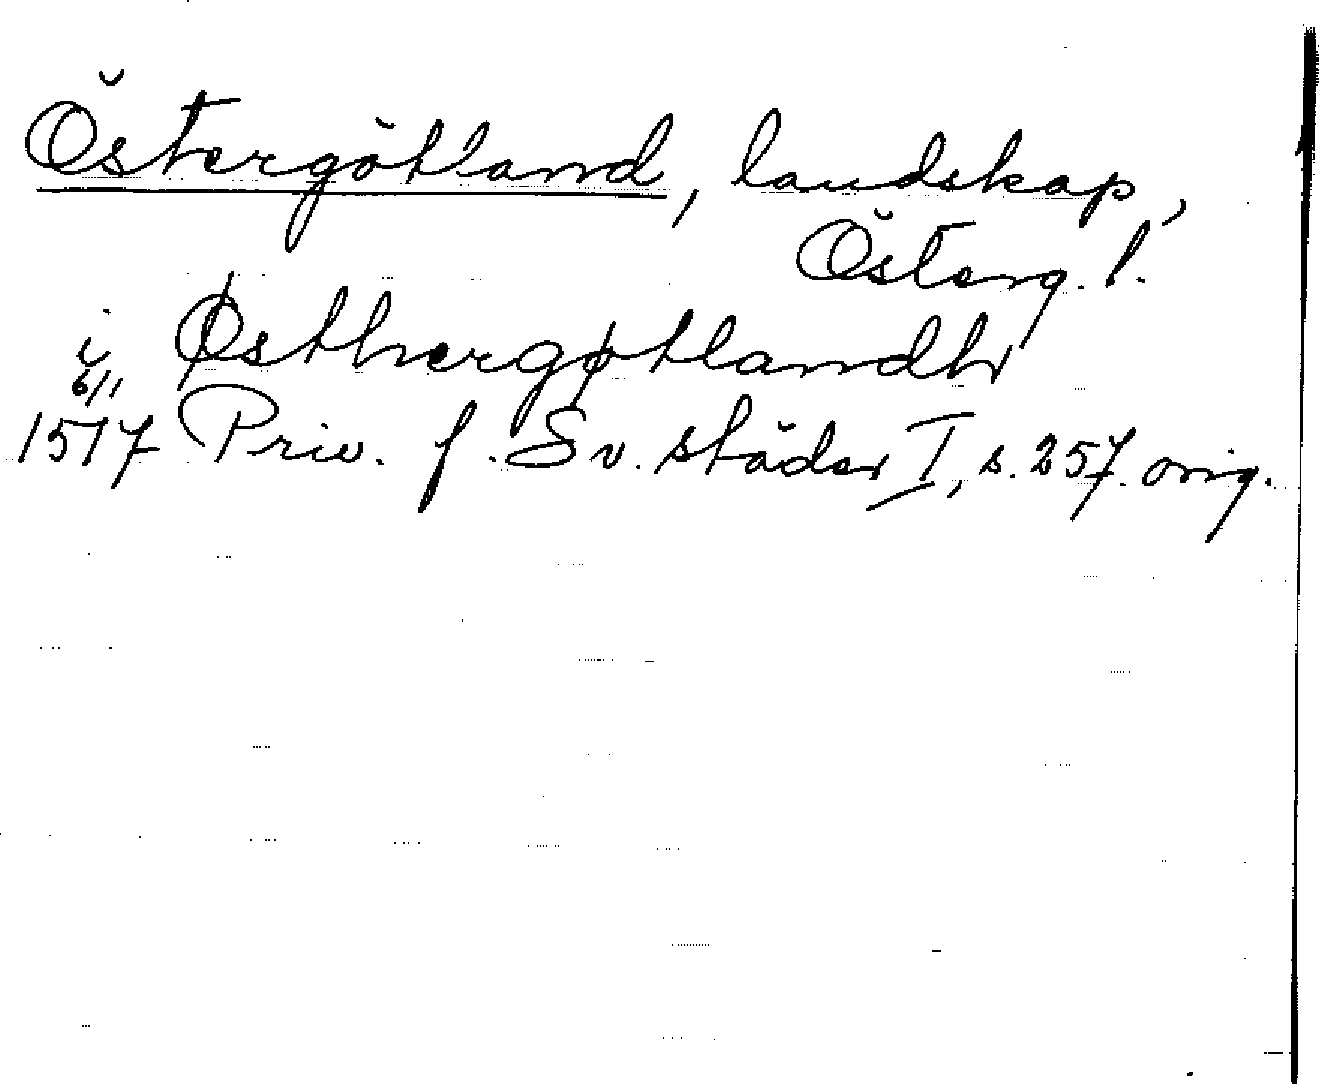 Östergötland, landskap,
Österg. l.
i Østhergøtlandh
6/11
1517 Priv. f. Sv. städer I, s. 257. orig.